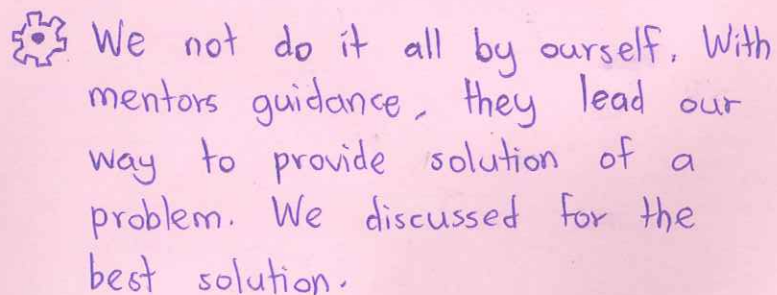 We not do it all by ourself. With
mentors guidance, they lead our
way to provide solution of a
problem. We discussed for the
best solution.